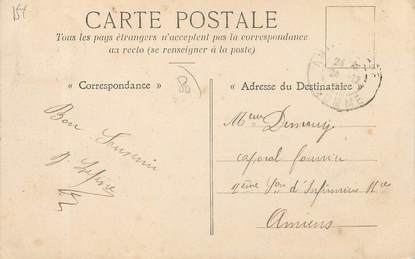 154
CARTE POSTALE
Tous les pays étrangers n'acceptent pas la correspondance
au recto (se renseigner à la poste)
« Correspondance »
80
« Adresse du Destinataire »
Bon Souvenir
caporal fourrier
9ème d'Infirmiers Mre
Amiens